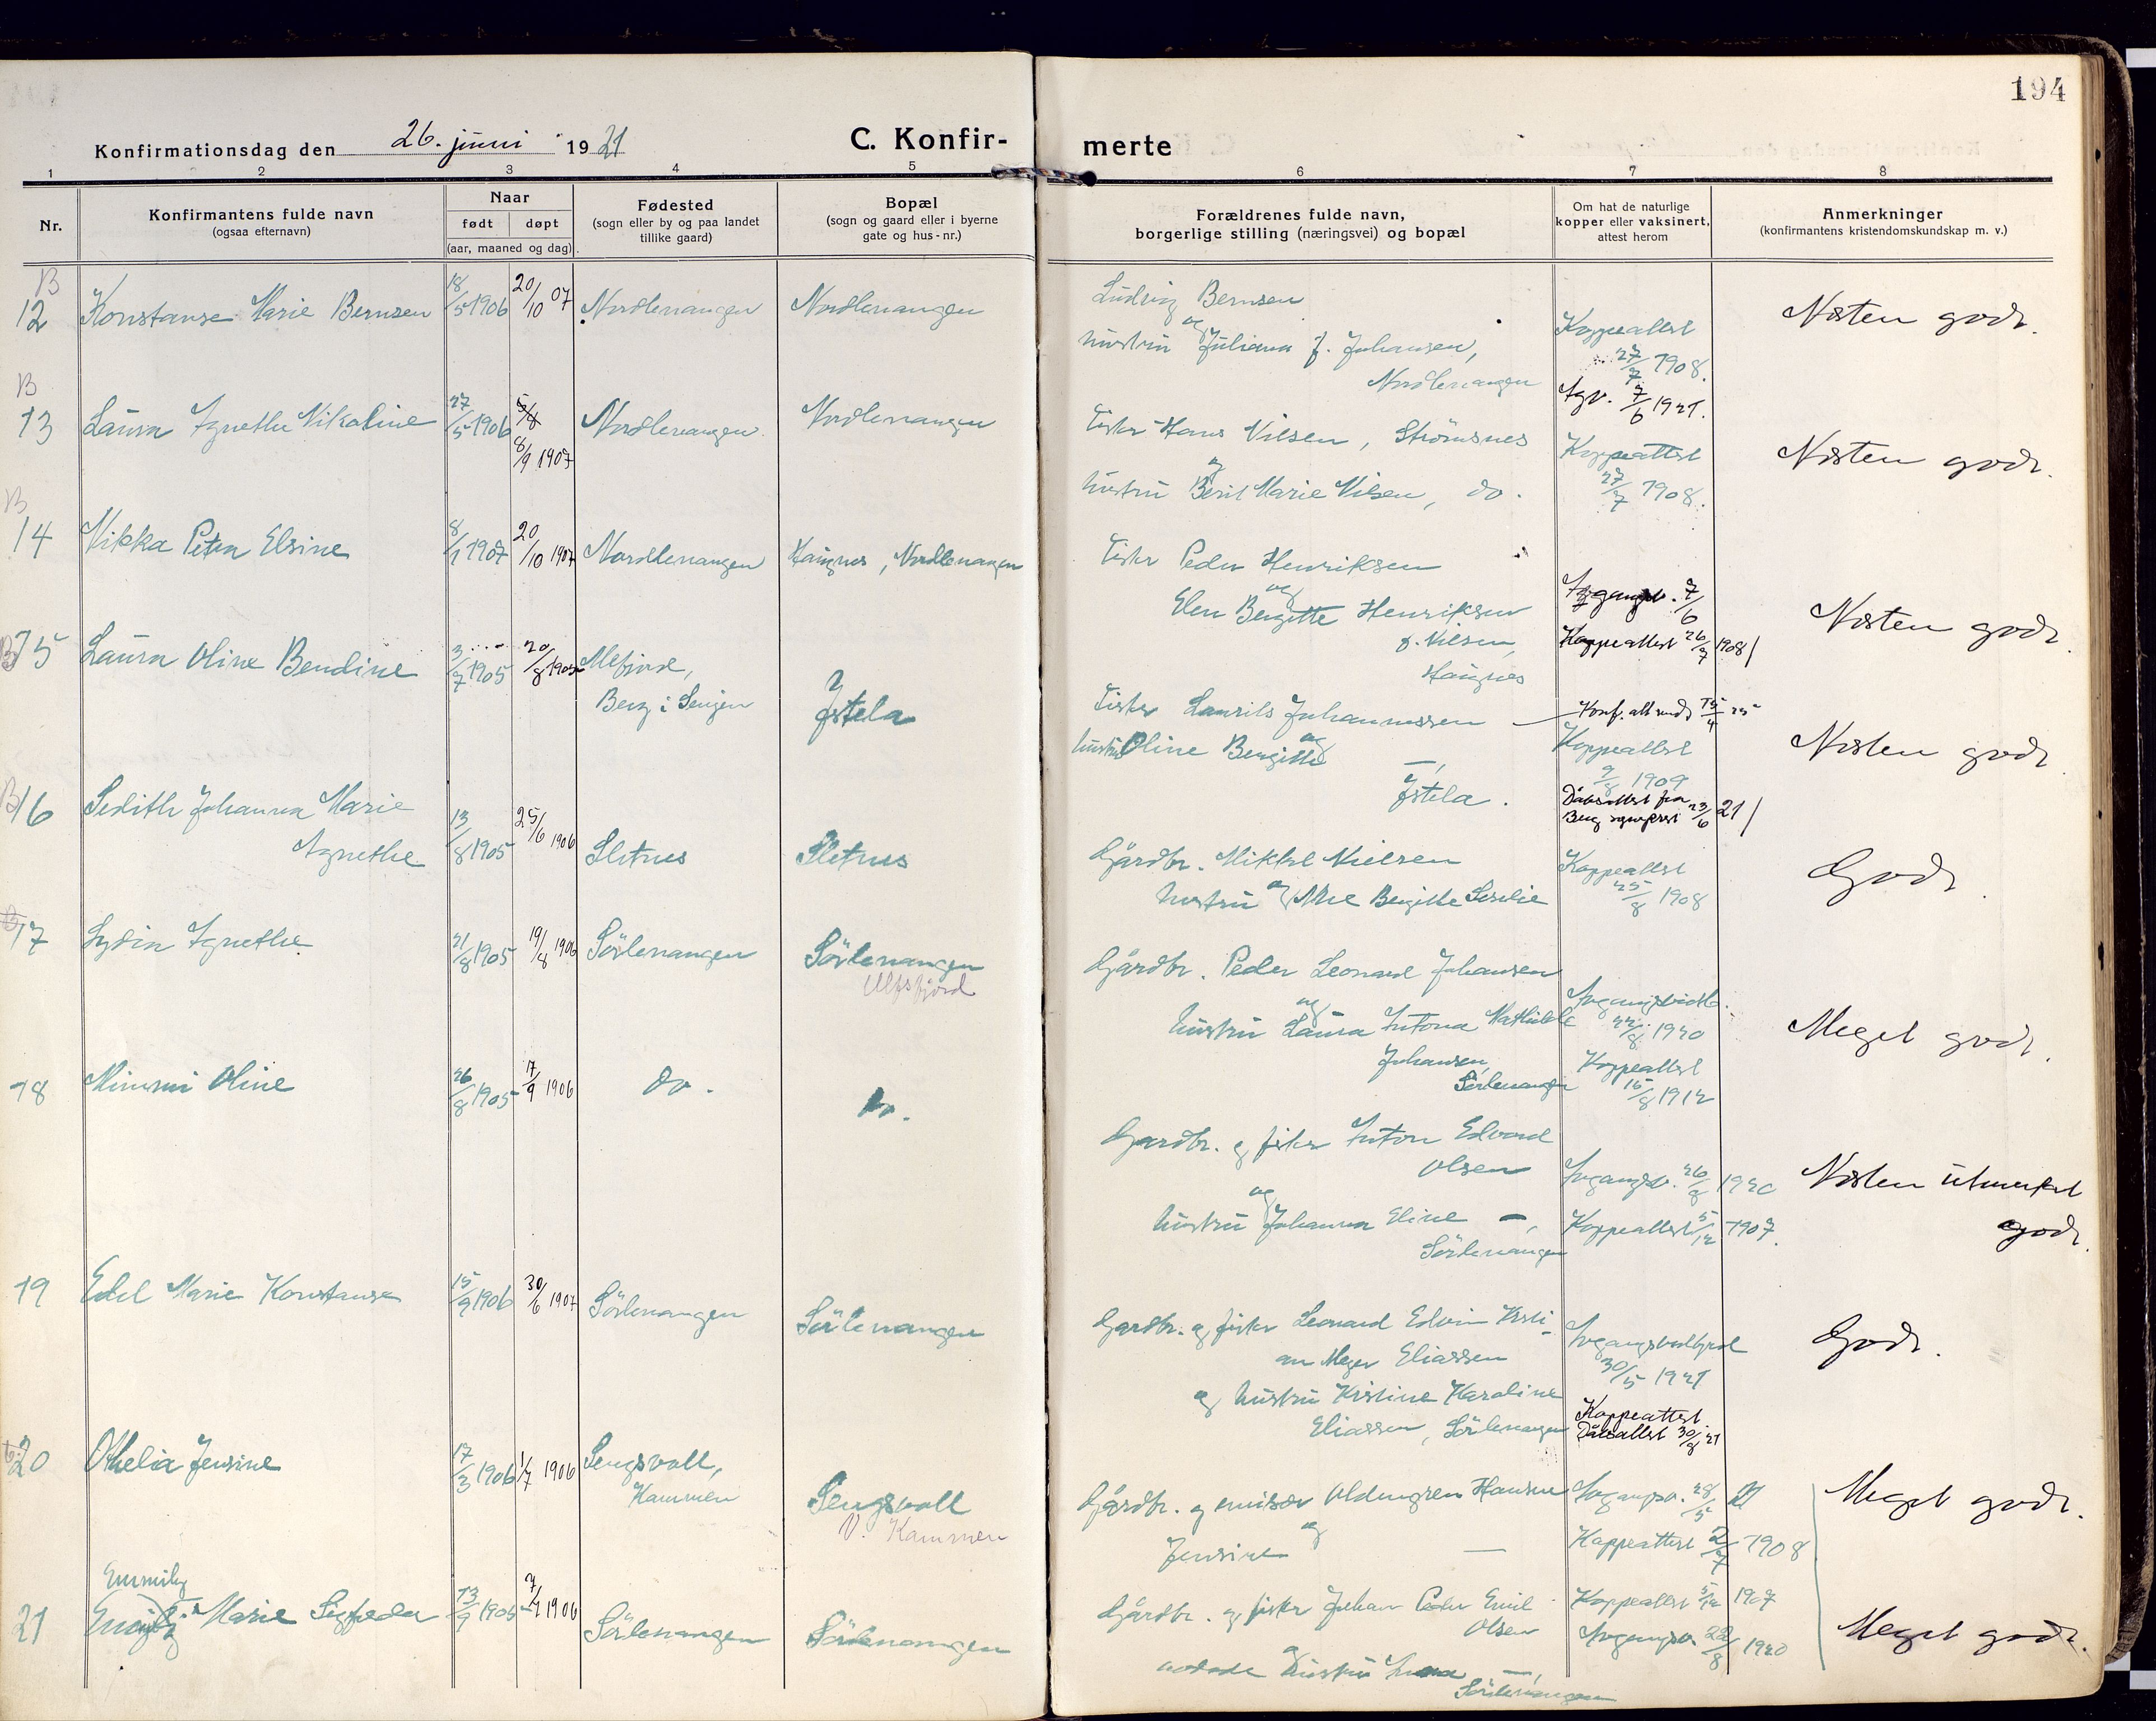 194
Konfirmationsdag den 26. juni 1921
C. Konfir-
merte
1 2 3 4 5 6 7 8
Nr.
Konfirmantens fulde navn
(ogsaa efternavn)
Naar
født døpt
(aar, maaned og dag)
Fødested
(sogn eller by og paa landet
tillike gaard)
Bopæl
(sogn og gaard eller i byerne
gate og hus-nr.)
Forældrenes fulde navn,
borgerlige stilling (næringsvei) og bopæl
Om hat de naturlige
kopper eller vaksinert,
attest herom
Anmerkninger
(konfirmantens kristendomskundskap m. v.)
B
12 Konstanse Marie Bernsen 18/5 1906 20/10 07 Nordlenangen Nordlenangen
Ludvig Bernsen
og
hustru Juliana f. Johansen,
Nordlenangen
Koppeattest
27/7 1908.
Næsten godt.
B
13 Laura Agnethe Nikoline 27/5 1906 8/9 1907 Nordlenangen Nordlenangen
Fisker Hans Nilsen, Strømsnes
og
hustru Berit Marie Nilsen, do.
Agv. 7/6 1921.
Koppeattest
27/7 1908.
Næsten godt.
B
14 Nikka Petra Elsine 8/1 1907 20/10 1907 Nordlenangen Haugnes, Nordlenangen
Fisker Peder Henriksen
og
Elen Bergitte Henriksen
f. Nilsen,
Haugnes
Avgangsv. 7/6
Koppeattest 26/7 1908/
Næsten godt.
B
15 Laura Oline Bendine 3/7 1905 20/8 1905 Mefjord,
Berg i Senjen
Jstela
Fisker Laurits Johannessen
og
hustru Oline Bergitte —,
Jstela.
Konf. att sendt 15/4 25
Koppeattest
9/8 1909
Dåbsattest fra
Berg sogneprest 23/6 21/
Næsten godt
B
16 Sedith Johanna Marie
Agnethe 13/8 1905 25/6 1906 Sletnes Sletnes
Gårdbr. Mikkel Nielsen
og
hustru Ane Bergitte Serelie
Koppeattest
25/8 1908
Godt
B
17 Lydia Agnethe 21/8 1905 19/8 1906 Sörlenangen Sörlenangen
Ulfsfjord
Gårdbr. Peder Leonard Johansen
og
hustru Laura Antona Mathilde
Johansen,
Sörlenangen
Avgangsvidb.
22/8 1920
Koppeattest
15/8 1912
Meget godt.
18 Mimmi Oline 26/8 1905 17/9 1906 do. do.
Gardbr. og fisker Anton Edvard
Olsen
og
hustru Johanna Eline —,
Sörlenangen
Avgangsv. 26/8 1920
Koppeattest 5/12 1907.
Næsten utmerket
godt.
19 Edel Marie Konstanse 15/9 1906 30/6 1907 Sörlenangen Sörlenangen
Gardbr. og fisker Leonard Edvin Kristi-
an Meyer Eliassen
og hustru Kristine Karoline
Eliassen, Sörlenangen
Avgangsvidbyrd
30/5 1921
Koppeattest.
Dåbsattest 30/8 21
Godt.
B
20 Othelia Jensine 17/3 1906 1/7 1906 Lengsvoll,
Kammen
Lengsvoll
V. Kammen
Gårdbr. og emisær Oldengren Hansen
og
Jensine —
Avgangsv. 28/5 21
Koppeattest 2/7 1908
Meget godt.
Emmily
21 Marie Sigfreda 13/9 1905 7/1 1906 Sörlenangen Sörlenangen
Gårdbr. og fisker Johan Peder Emil
Olsen
og
hustru Anna —,
Sörlenangen
Koppeattest 5/12 1907
Avgangsv. 22/8 1920
Meget godt.